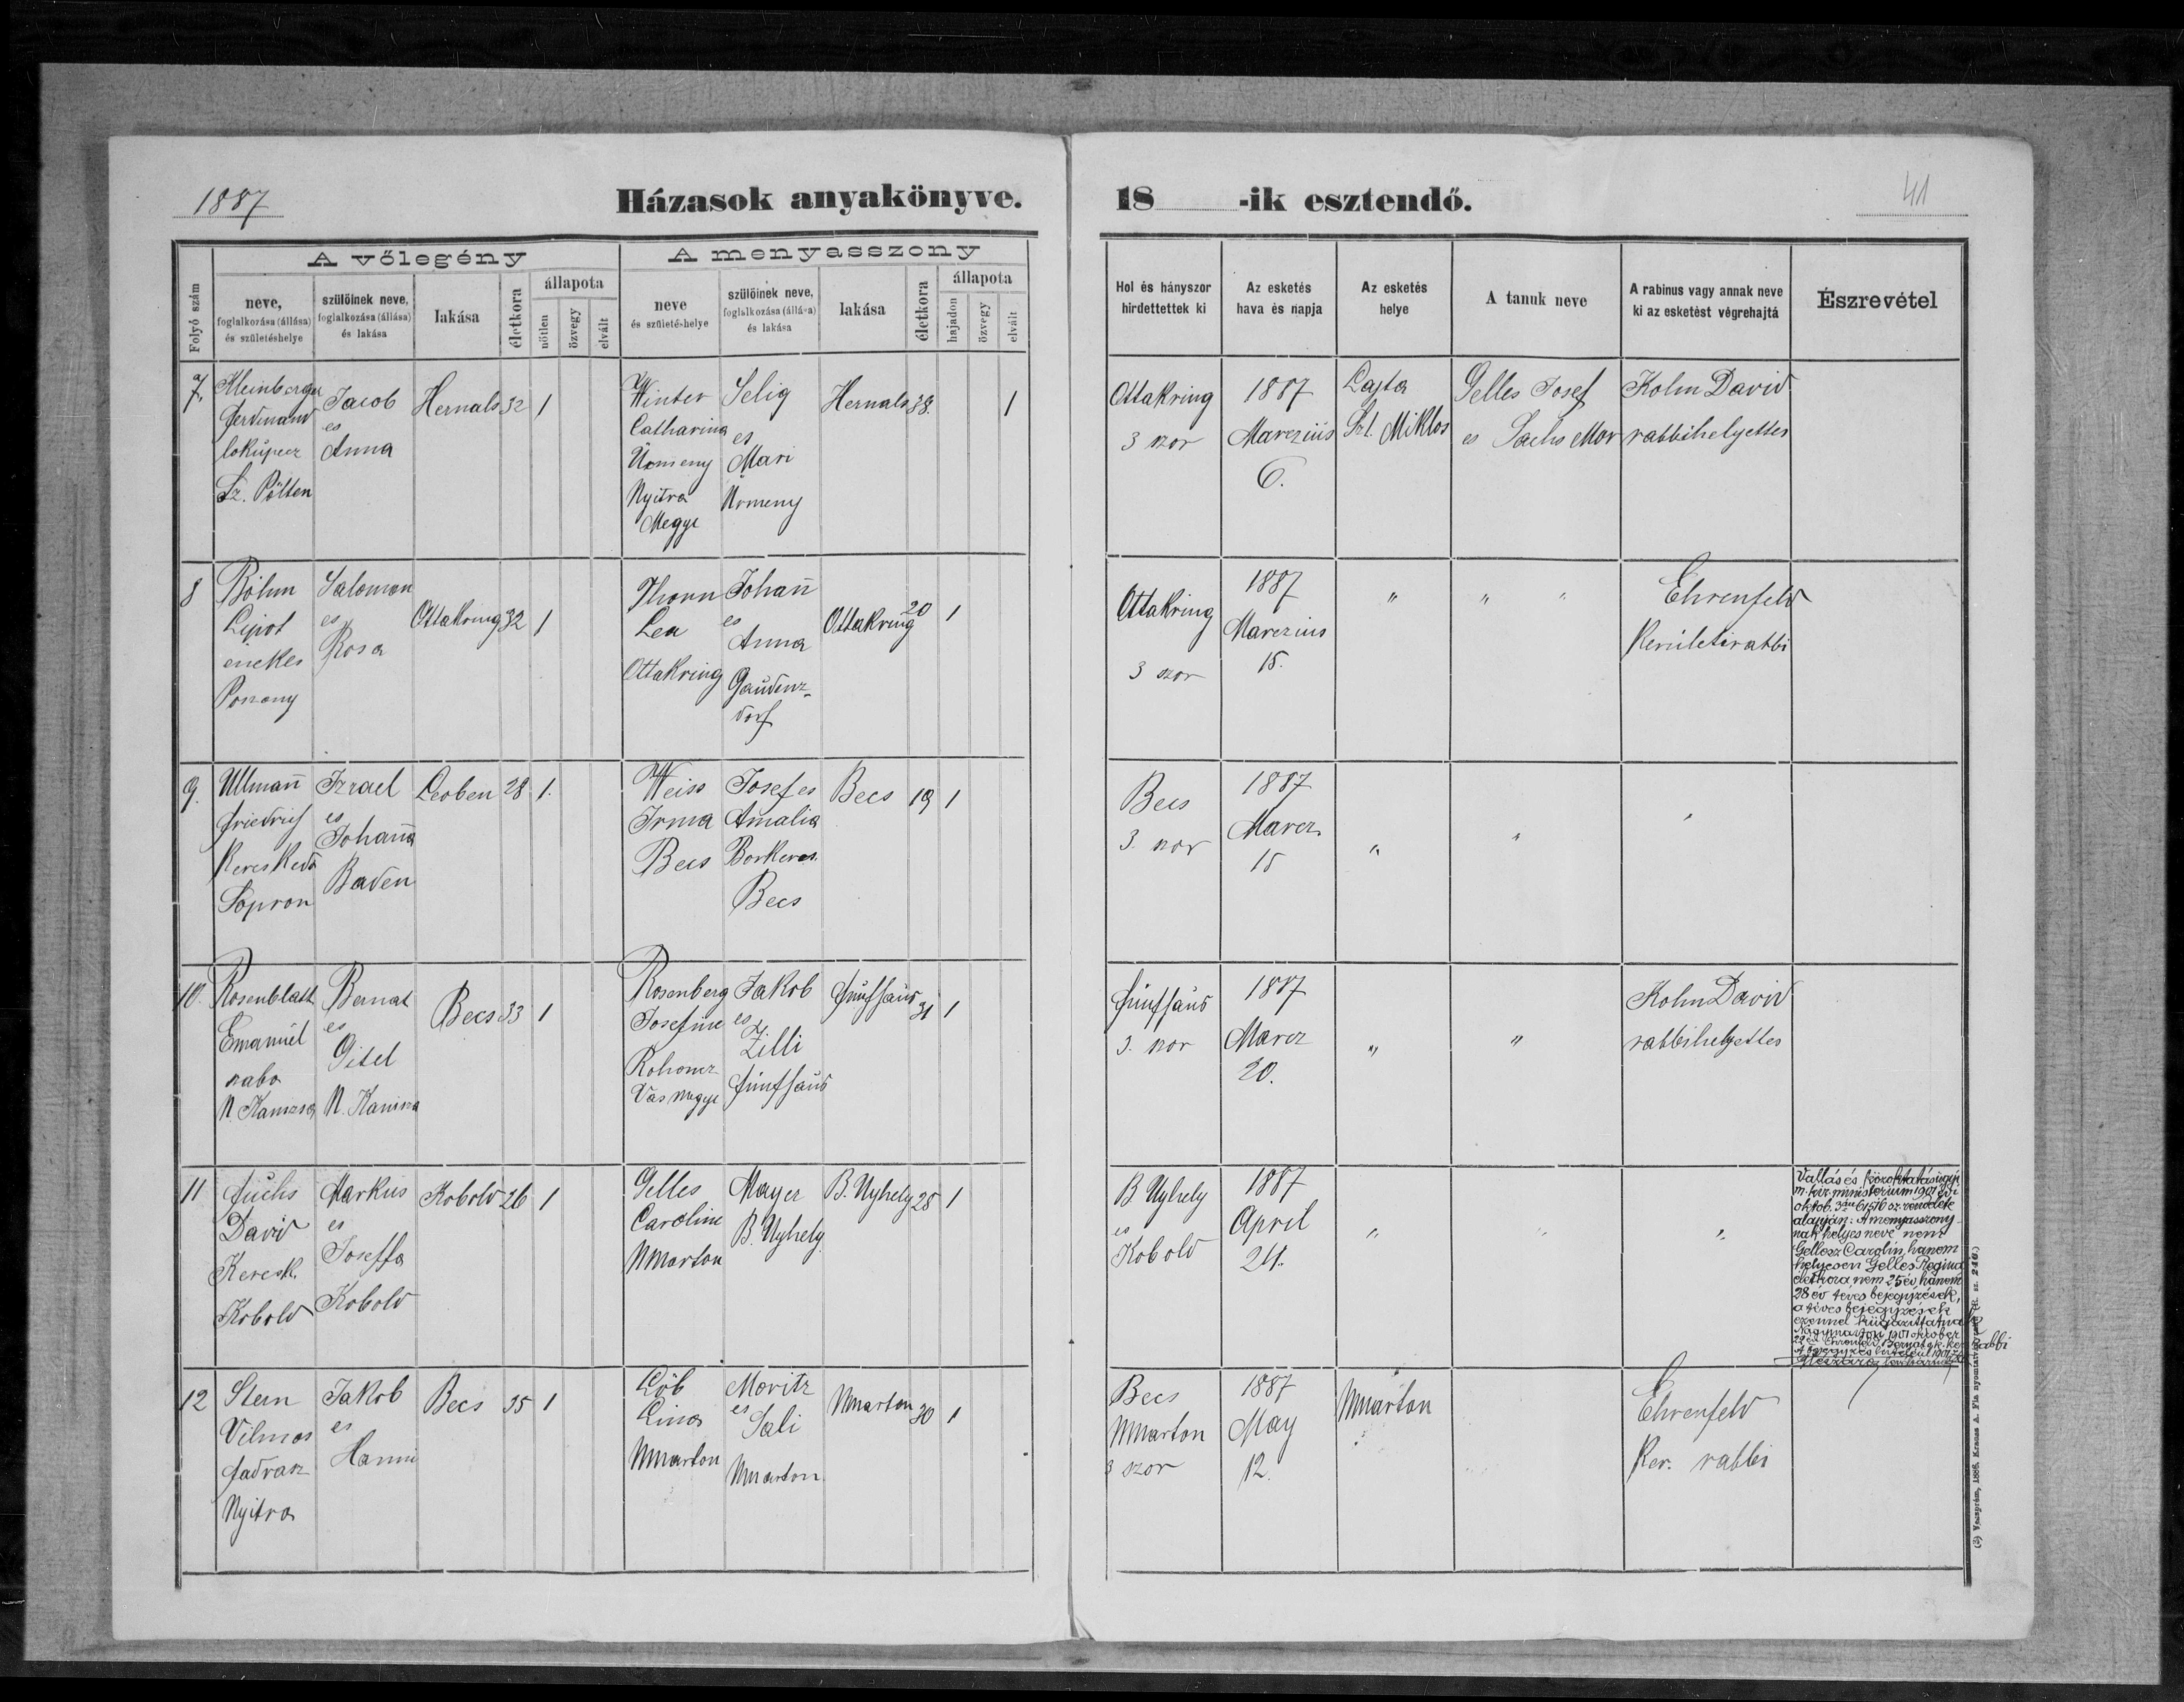 1887
Házasok anyakönyve.
18 -ik esztendő.
41
Folyó szám
A vőlegény
neve,
foglalkozása (állása)
és születéshelye
szülőinek neve,
foglalkozása (állása)
és lakása
lakása
életkora
állapota
nőtlen
özvegy
elvált
A menyasszony
neve
és születéshelye
szülőinek neve,
foglalkozása (állása)
és lakása
lakása
életkora
állapota
hajadon
özvegy
elvált
Hol és hányszor
hirdettettek ki
Az esketés
hava és napja
Az esketés
helye
A tanuk neve
A rabinus vagy annak neve
ki az esketést végrehajtá
Észrevétel
7.
Kleinberger
Ferdinand
lokupecz
Sz. Pölten
Jacob
es
Anna
Hernals
32
1
Winter
Catharina
Ürmeny
Nyitra
Megye
Selig
es
Mari
Ürmeny
Hernals
38.
1
Ottakring
3 szor
1887
Marczius
6.
Lajta
Szt. Miklos
Gelles Josef
es Sachs Mor
Kohn David
rabbihelyettes
8
Böhm
Lipot
enekes
Pozsony
Salomon
es
Rosa
Ottakring
32
1
Thorn
Lea
Ottakring
Johan̄
es
Anna
Gaudenz-
dorf
Ottakring
20
1
Ottakring
3 szor
1887
Marczius
15.
"
" "
Ehrenfeld
Kerületi rabbi
9.
Ullman̄
Friedrich
Kereskedő
Sopron
Izrael
es
Johan̄a
Baden
Leoben
28
1.
Weiss
Irma
Becs
Josef es
Amalia
Borkeres.
Becs
Becs
19
1
Becs
3. szor
1887
Marcz.
15
"
"
"
10.
Rosenblatt
Emanuel
szabo
N. Kanizsa
Bernat
es
Gitel
N. Kanizsa
Becs
33
1
Rosenberg
Josefine
Rohoncz
Vas megye
Jakob
es
Zilli
Fünfhaus
Fünfhaus
31
1
Fünfhaus
3. szor
1887
Marcz
20.
"
"
Kohn David
rabbihelyettes
11
Fuchs
David
Keresk.
Kobold
Markus
es
Joseffa
Kobold
Kobold
26
1
Gelles
Caroline
Nmarton
Mayer
B. Ujhely
B. Ujhely
25
1
B Ujhely
es
Kobold
1887
April
24.
"
"
"
Vallás és közoktatásügyi
m. kir. ministerium 1901 évi
oktob. 3án 61516 sz. rendelete
alapján: A menyasszony-
nak helyes neve nem
Gellesz Carolin, hanem
helyesen Gelles Regina
életkora nem 25 év, hanem
28 év téves bejegyzések,
a téves bejegyzések
ezennel kiigazittatnak
Nagymarton 1901 október
Ehrenfeld Bernát gk. ker. rabbi
12
Stern
Vilmos
fadrasz
Nyitra
Jakob
es
Hanni
Becs
35
1
Löb
Lina
Nmarton
Moritz
es
Sali
Nmarton
Nmarton
30
1
Becs
Nmarton
3 szor
1887
May
12.
Nmarton
Ehrenfeld
Ker. rabbi
(3) Veszprém, 1886. Krausz A. Fia nyomtatványai.